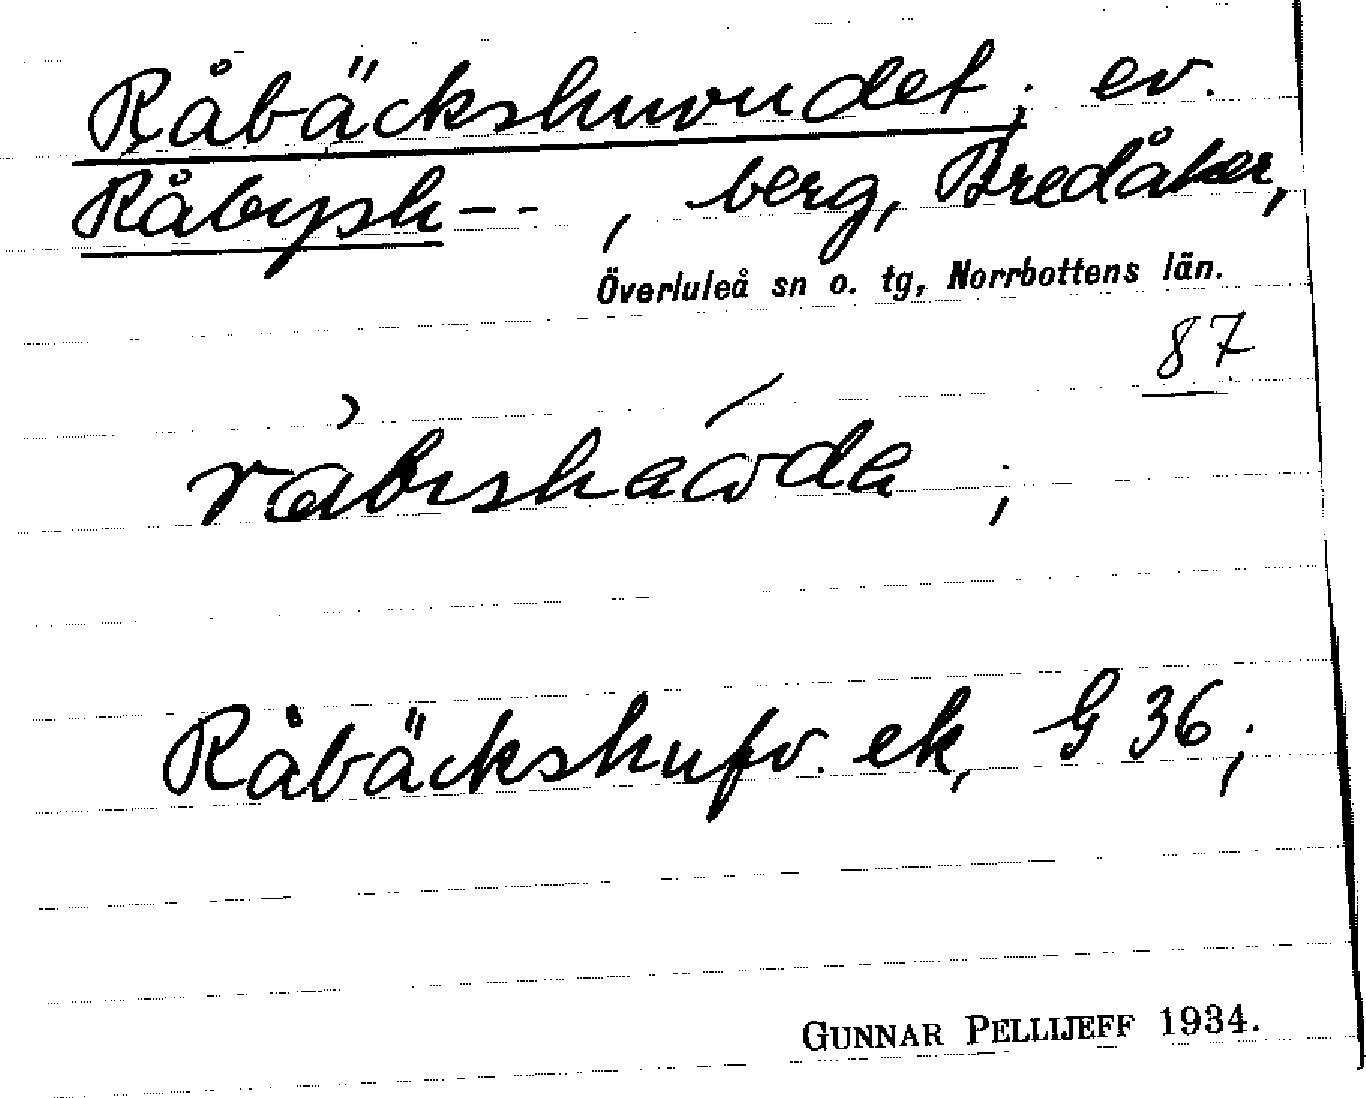 Råbäckshuvudet; ev.
Råbysh--, berg, Bredåker,
Överluleå sn o. tg, Norrbottens län.
87
Råbäckshufv. ek, G 36;
GUNNAR PELLIJEFF 1934.